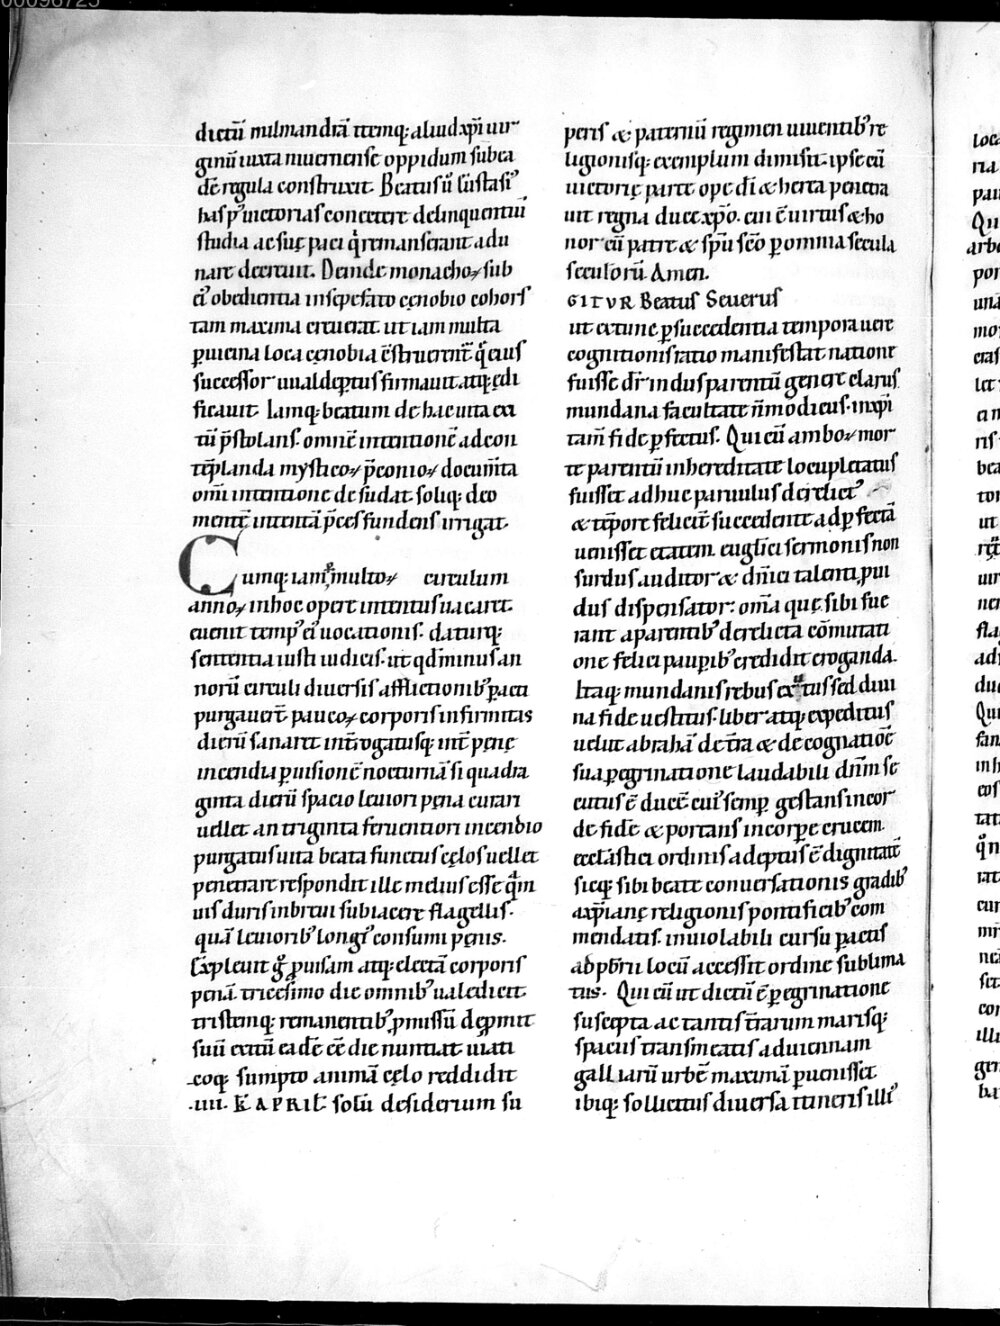 00096725
dictū milmandrā itemq; aliud xp̄i uir
ginū iuxta niuernense oppidum sub ea
dē regula construxit. Beatus u̅ Eustasi᾽
has p᾽ uictorias concitere delinquentiū
studia ac suę paci q̍ remanserant adu
nare decreuit. Deinde monachoꝝ sub
ei᾽ obedientia insepefato cęnobio cohors
tam maxima creuerat ut iam multa
ꝑ uicina loca cęnobia ēstruerent̄ q̄ eius
successor uualdeptus firmauit atq; ędi
ficauit. Iamq; beatum de hac uita exi
tū p̄stolans. omnē intentionē ad con
tēplanda mysticoꝝ p̄conioꝝ documt̄a
omī intentione desudat. soliq; deo
mentę intentā p̄ces fundens irrigat.
Cumq; iam multoꝝ circulum
annoꝝ in hoc opere intentus uacaret.
euenit temp᾽ ei᾽ uocationis. daturq;
sententia iusti iudicis. ut qd̄ minus an
norū circuli diuersis afflictionib᾽ ꝑacti
purgauer̄t paucoꝝ corporis infirmitas
dierū sanaret int̄rogatusq; int̄ penę
incendii ꝑ uisionē nocturnā si quadra
ginta dierū spacio leuiori pęna curari
uellet an triginta feruentiori incendio
purgatus uita beata functus cęlos uellet
penetrare respondit ille melius esse q̄m
uis duris in breui subiacere flagellis.
quā leuiorib᾽ long᾽ consumi pęnis.
Expleuit g̊ ꝓuisam atq; electā corporis
penā. tricesimo die omnib᾽ ualedicit.
tristemq; remanentib᾽ ꝓmissū deꝓmit
suū exitū eadē eē die nuntiat. uiati
coq; sumpto animā cęlo reddidit
.iiii. K̄ APRIL̄ solū desiderium su
peris & paternū regimen uiuentib᾽ re
ligionisq; exemplum dimisit. ipse cū
uictorię parte ope dī & herea penetra
uit regna duce xp̄o. cui ē uirtus & ho
nor cū patre & sp̄u sc̄o ꝑ omnia secula
seculorū Amen.
GITVR Beatus Seuerus
ut extunc ꝑ succedentia tempora uere
cognitionis ratio manifestat natione
fuisse dr̄ indus parentū genere clarus
mundana facultate n̄ modicus. in xp̄i
tam̄ fide ꝑfectus. Qui cū amboꝝ mor
te parentū in hereditate locupletatus
fuisset adhuc paruulus derelict᾽
& tēpore felicit̄ succedente ad ꝑfectā
uenisset etatem. euglīci sermonis non
surdus auditor & dn̄ici talenti pui
dus dispensator: om̄a quę sibi fue
rant a parentib᾽ derelicta cōmutati
one felici paupib᾽ credidit eroganda.
Itaq; mundanis rebus exutus sed diui
na fide uestitus. liber atq; expeditus
uelut abrahā de tr̄a & de cognatiōē
sua ꝑegrinatione laudabili dn̄m se
cutus ē ducē cui᾽ semꝑ gestans in cor
de fidē & portans in corpe crucem.
ecclastici ordinis adeptus ē dignitatē
sicq; sibi beate conuersationis gradib᾽
a xp̄ianę religionis pontificib᾽ com
mendatis. inuiolabili cursu ꝑactis
ad pbr̄ii locū accessit ordine sublima
tus. Qui cū ut dictū ē ꝑegrinatione
suscepta ac tantis t̄rarum marisq;
spaciis transmeatis ad uiennam
galliarū urbē maximā ꝑuenisset
ibiq; sollicitus diuersa itineris illi᾽